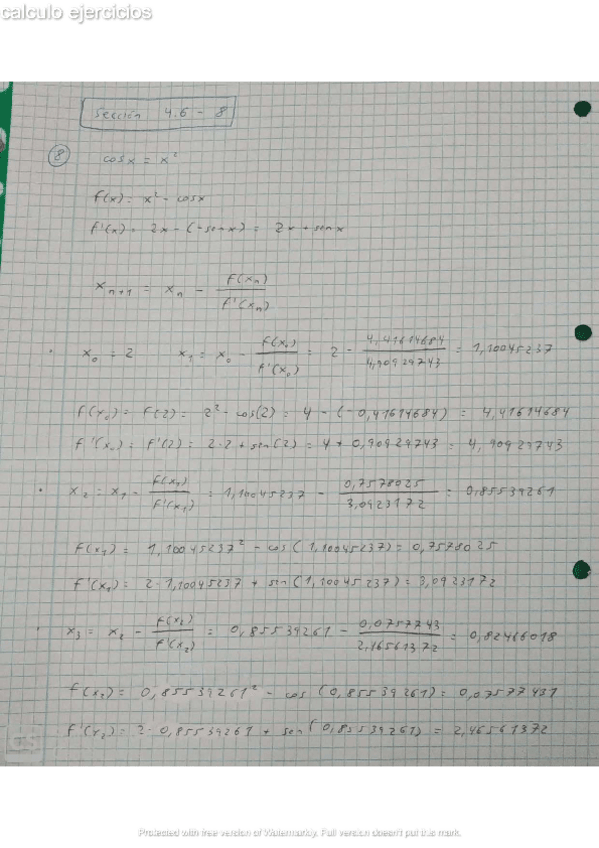 calculo ejercicios
Sección 4.6 - 8
8 cosx = x²
f(x) = x² - cosx
f'(x) = 2x - (-senx) = 2x + senx
x_{n+1} = x_n - f(x_n) / f'(x_n)
• x₀ = 2 x₁ = x₀ - f(x₀) / f'(x₀) = 2 - 4,41614684 / 4,90929743 = 1,10045237
f(x₀) = f(2) = 2² - cos(2) = 4 - (-0,41614684) = 4,41614684
f'(x₀) = f'(2) = 2·2 + sen(2) = 4 + 0,90929743 = 4,90929743
• x₂ = x₁ - f(x₁) / f'(x₁) = 1,10045237 - 0,7578025 / 3,0923172 = 0,85539261
f(x₁) = 1,10045237² - cos(1,10045237) = 0,7578025
f'(x₁) = 2·1,10045237 + sin(1,10045237) = 3,0923172
• x₃ = x₂ - f(x₂) / f'(x₂) = 0,85539261 - / = 0,82466018
f(x₂) = 0,85539261² - cos(0,85539261) =
f'(x₂) = 2·0,85539261 + sen(0,85539261) = 2,46561372
Protected with free version of Watermarkly. Full version doesn't put this mark.